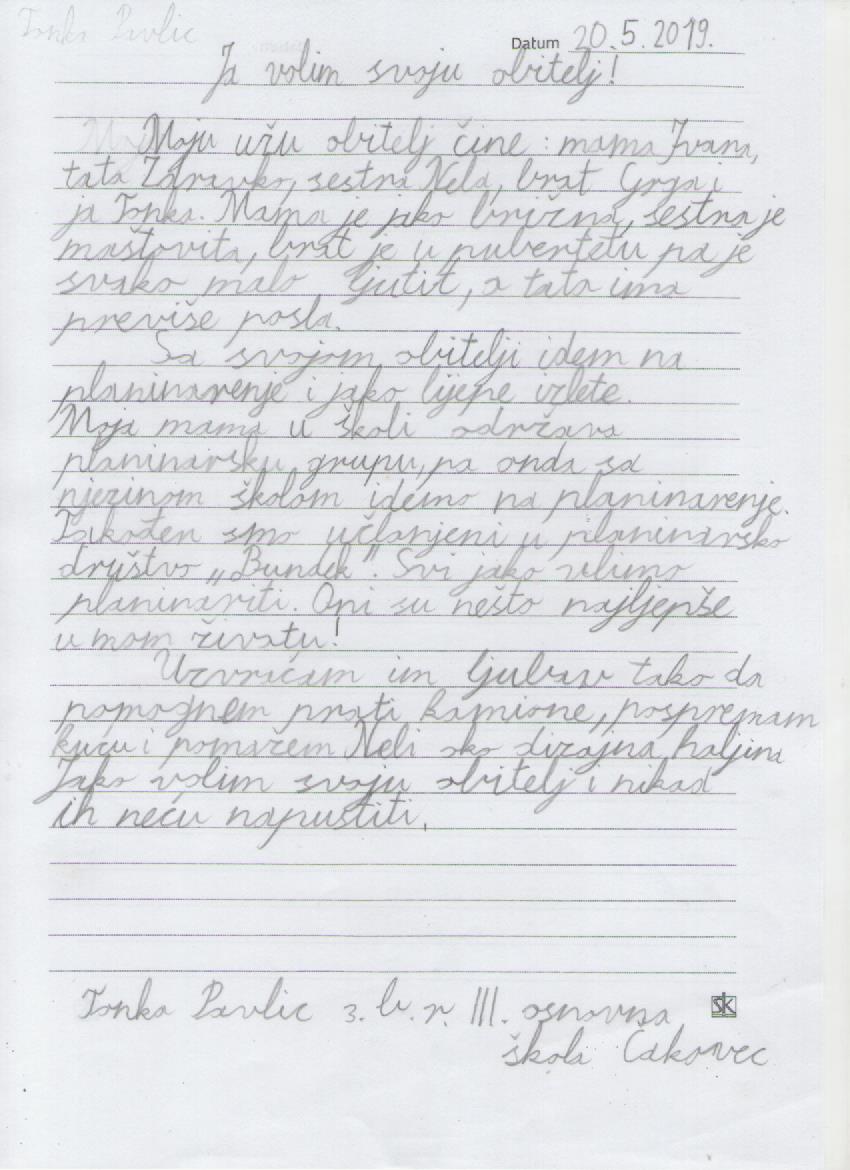 Tonka Pavlic
Datum 20.5.2019.
Ja volim svoju obitelj!
Moju užu obitelj čine: mama Ivana,
tata Zdravko, sestra Nela, brat Grga i
ja Tonka. Mama je jako brižna, sestra je
maštovita, brat je u pubertetu pa je
svako malo ljutit, a tata ima
previše posla.
Sa svojom obitelji idem na
planinarenje i jako lijepe izlete.
Moja mama u školi održava
planinarsku grupu, pa onda sa
njezinom školom idemo na planinarenje.
Također smo učlanjeni u planinarsko
društvo „Bundek". Svi jako vlimo
planinariti. Oni su nešto najljepše
u mom životu!
Uzvraćam im ljubav tako da
pomognem prati kamione, pospremam
kuću i pomažem Neli oko dizajna haljina
Jako volim svoju obitelj i nikad
ih neću napustiti.
Tonka Pavlic 3. b. r. III. osnovna
škola Čakovec
šk